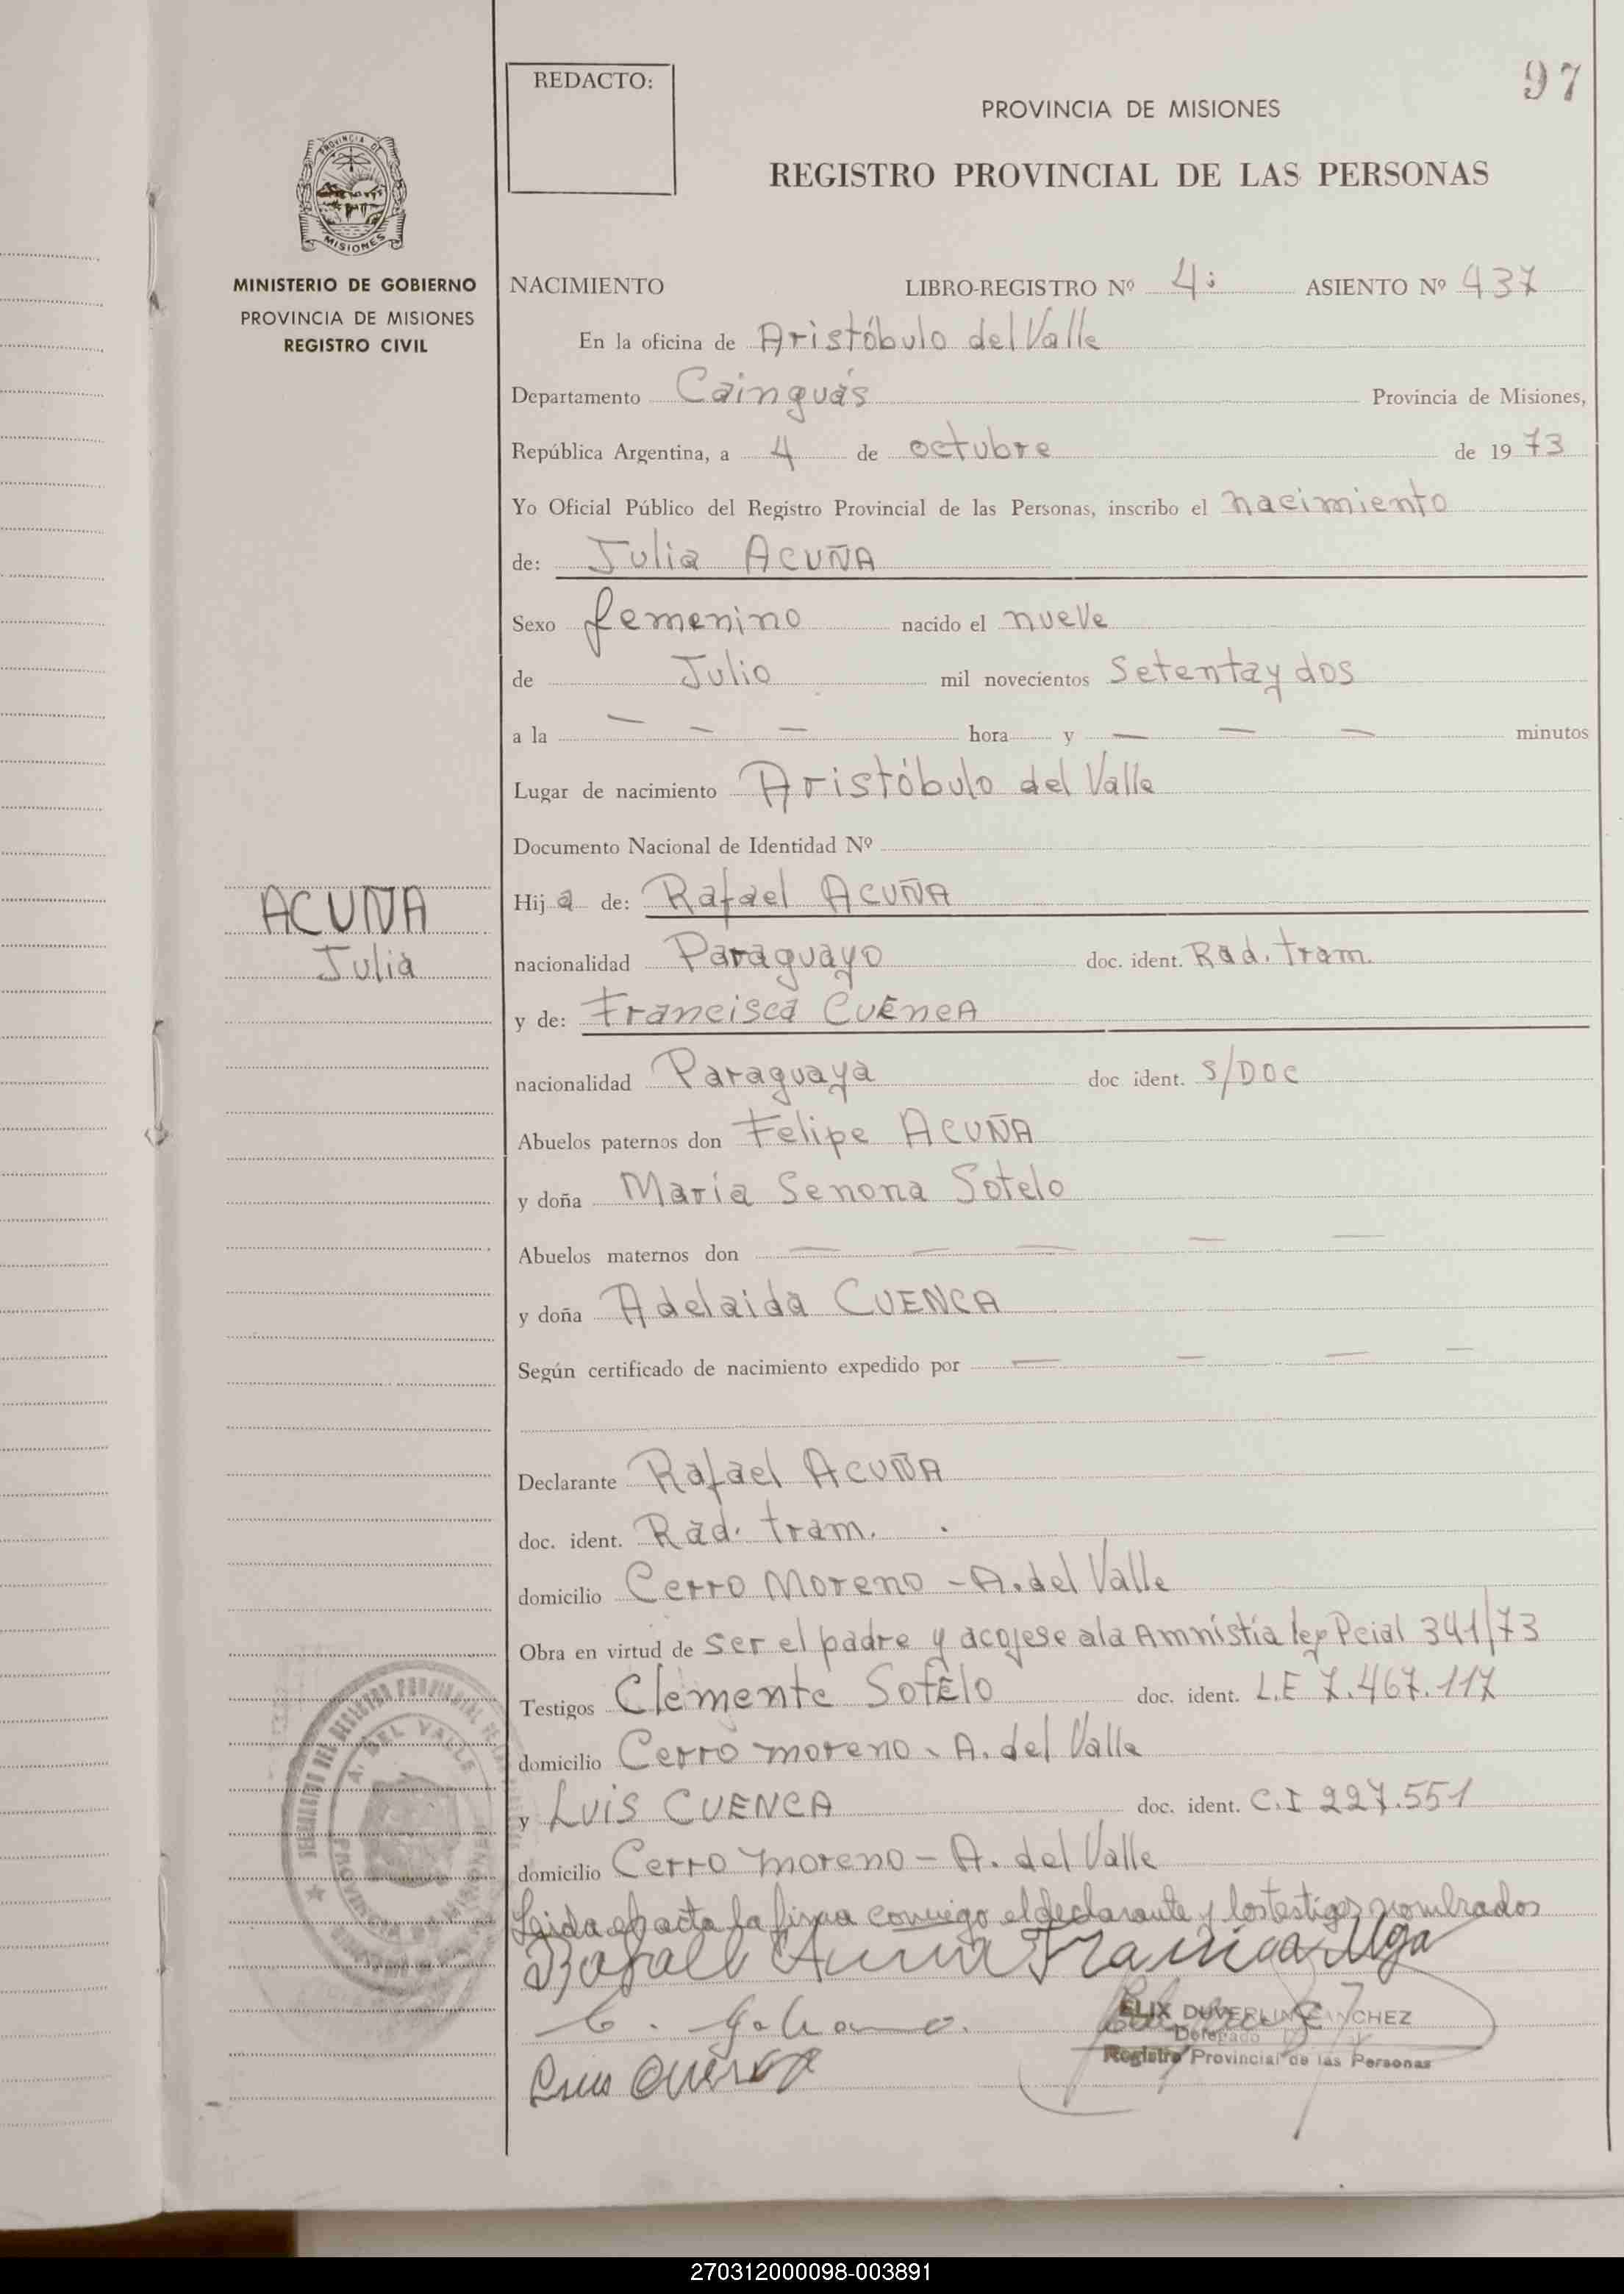 97
REDACTO:
PROVINCIA DE MISIONES
REGISTRO PROVINCIAL DE LAS PERSONAS
PROVINCIA DE
MISIONES
MINISTERIO DE GOBIERNO
PROVINCIA DE MISIONES
REGISTRO CIVIL
NACIMIENTO LIBRO-REGISTRO Nº 4: ASIENTO Nº 437
En la oficina de Aristóbulo del Valle
Departamento Cainguás Provincia de Misiones,
República Argentina, a 4 de octubre de 19 73
Yo Oficial Público del Registro Provincial de las Personas, inscribo el nacimiento
de: Julia ACUÑA
Sexo femenino nacido el nueve
de Julio mil novecientos Setenta y dos
a la — — — hora y — — — minutos
Lugar de nacimiento Aristóbulo del Valle
Documento Nacional de Identidad Nº
ACUÑA
Julia
Hij a de: Rafael ACUÑA
nacionalidad Paraguayo doc. ident. Rad. tram.
y de: Francisca CUENCA
nacionalidad Paraguaya doc ident. S/DOC
Abuelos paternos don Felipe ACUÑA
y doña María Senona Sotelo
Abuelos maternos don — — — — —
y doña Adelaida CUENCA
Según certificado de nacimiento expedido por — — — —
Declarante Rafael ACUÑA
doc. ident. Rad. tram.
domicilio Cerro Moreno - A. del Valle
Obra en virtud de ser el padre y acojese a la Amnistía ley Pcial 341/73
Testigos Clemente Sotelo doc. ident. L.E 7.467.117
domicilio Cerro moreno - A. del Valle
y Luis CUENCA doc. ident. C.I 227.551
domicilio Cerro moreno - A. del Valle
Leida el acta la firma conmigo el declarante y los testigos nombrados
A. DEL VALLE
PROVINCIA DE MISIONES
ELIX DUVERLIN SANCHEZ
Delegado
Registro Provincial de las Personas
270312000098-003891